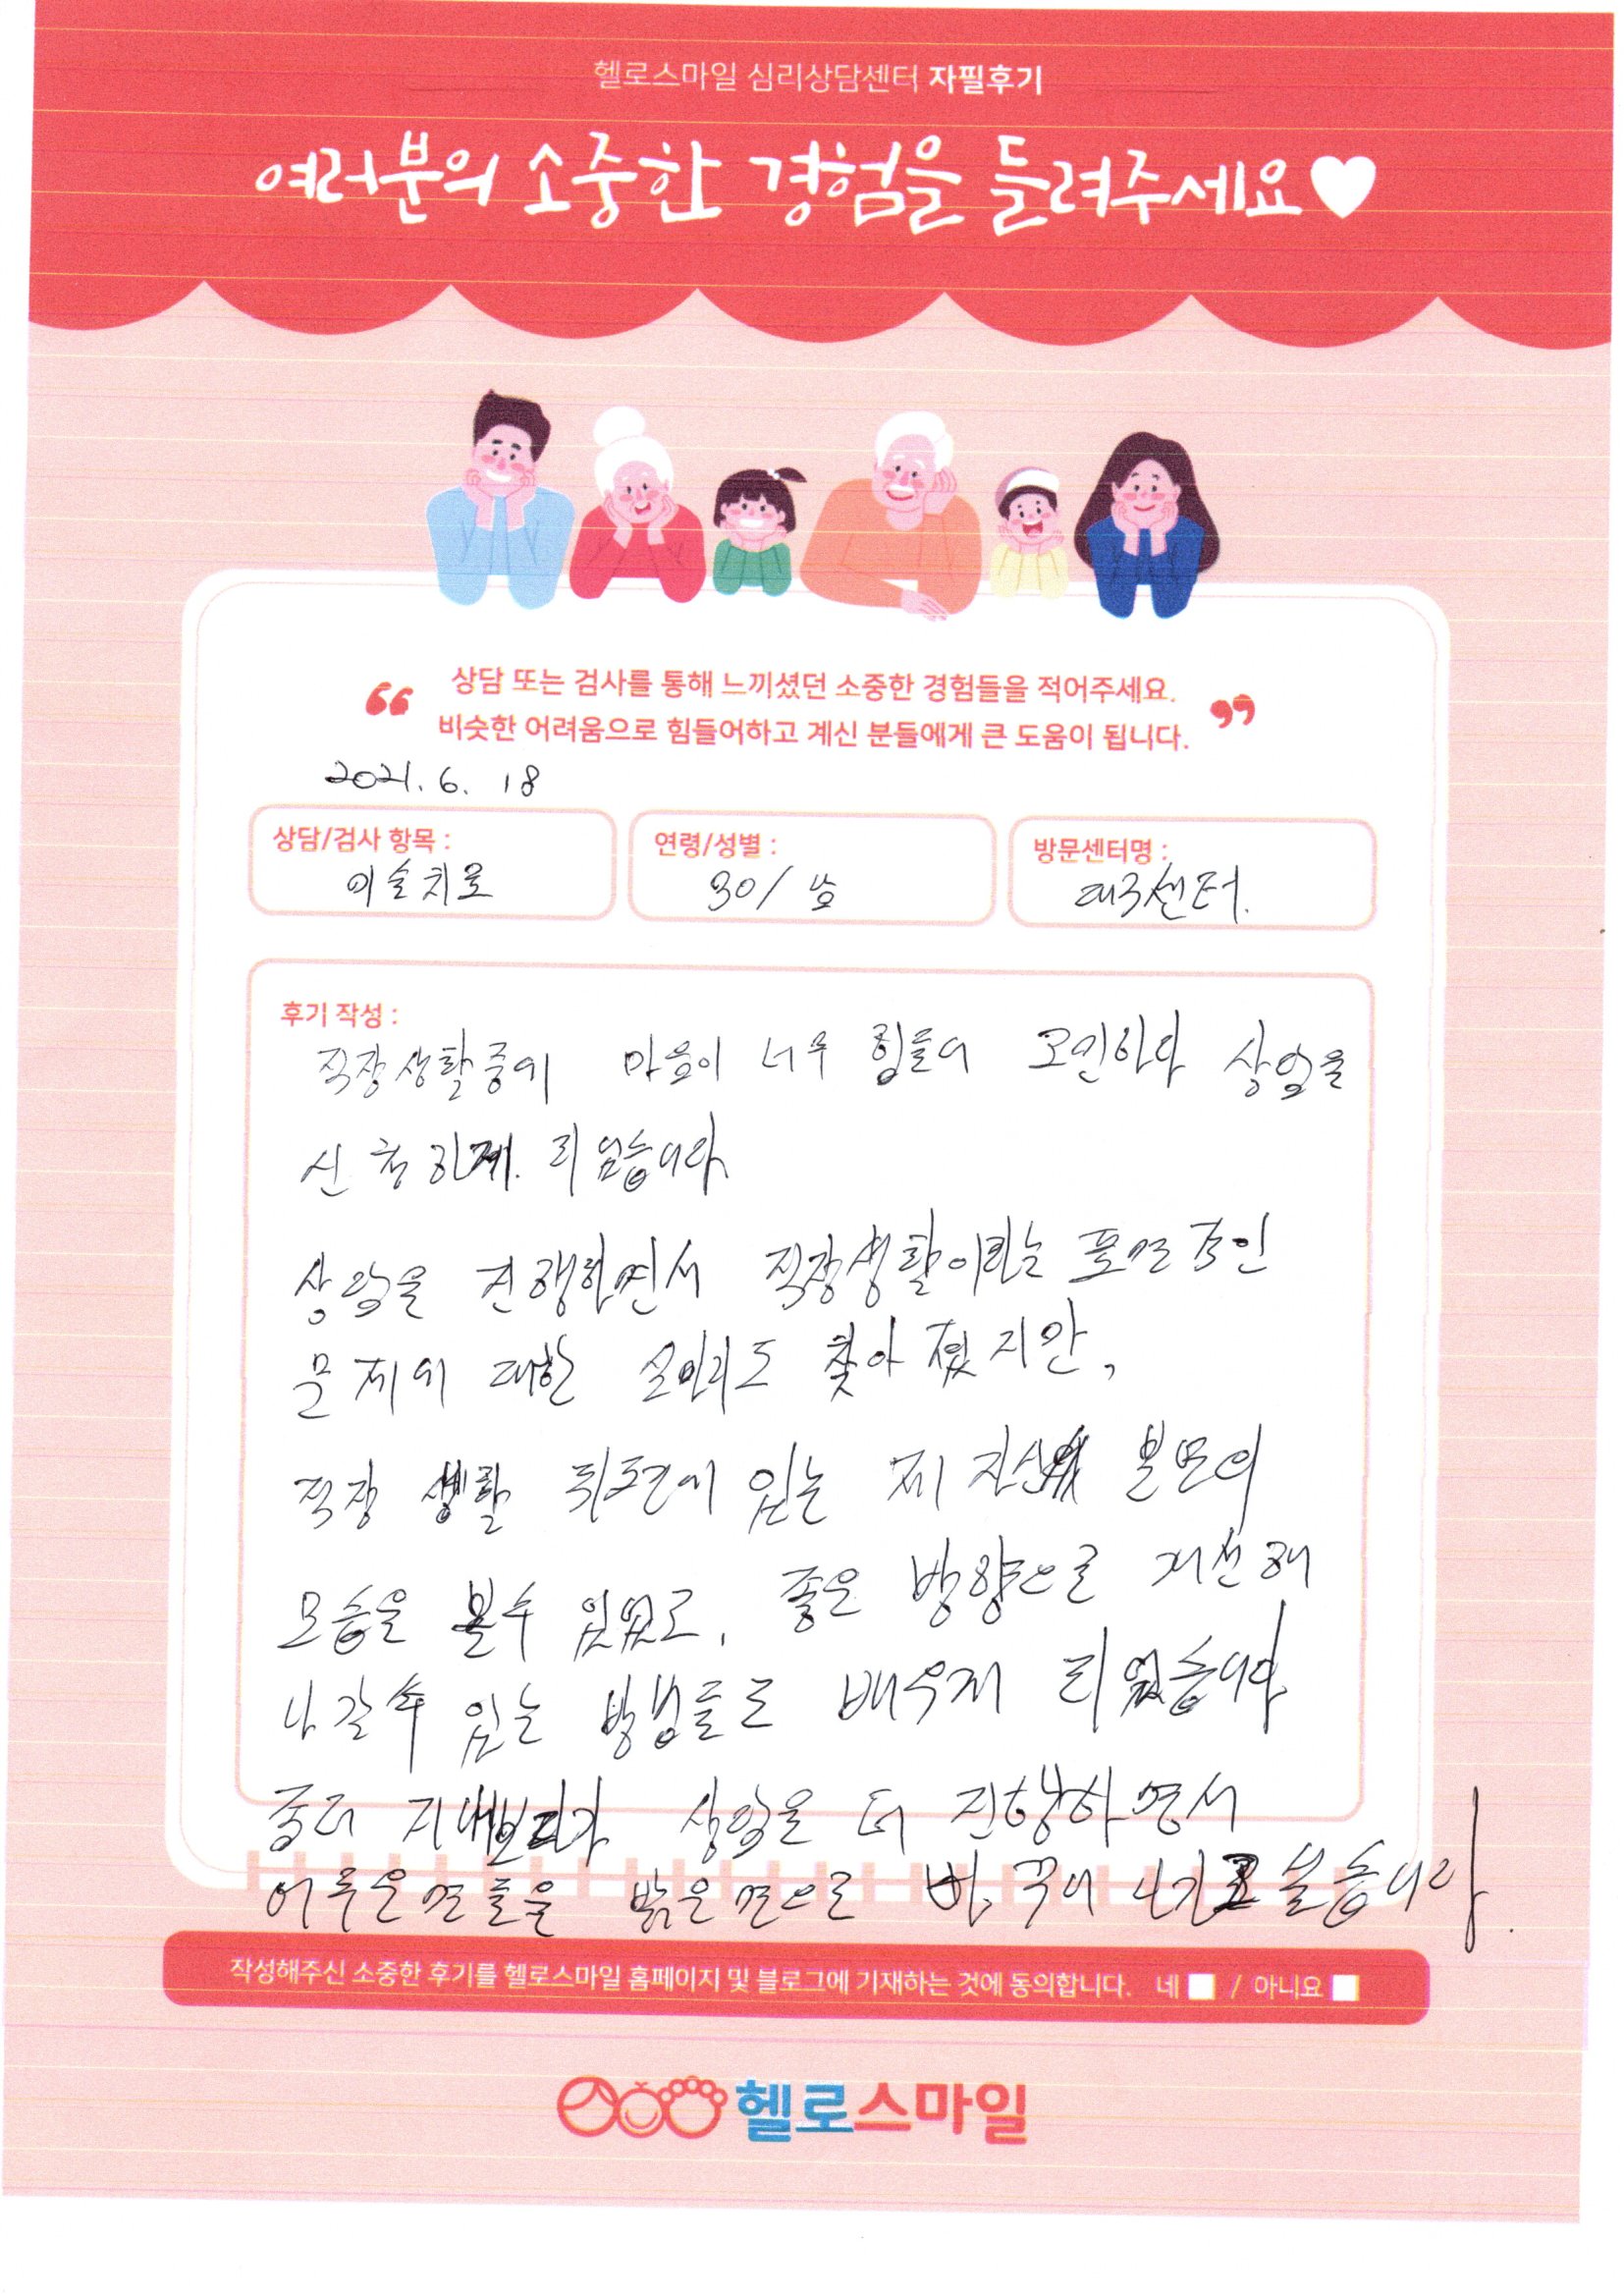 헬로스마일 심리상담센터 자필후기
여러분의 소중한 경험을 들려주세요♥
“ 상담 또는 검사를 통해 느끼셨던 소중한 경험들을 적어주세요.
비슷한 어려움으로 힘들어하고 계신 분들에게 큰 도움이 됩니다. ”
2021. 6. 18
상담/검사 항목 :
미술치료
연령/성별 :
30/남
방문센터명 :
대구센터.
후기 작성 :
직장생활중에 마음이 너무 힘들어 고민하다 상담을
신청하게. 되었습니다.
상담을 진행하면서 직장생활이라는 표면적인
문제에 대한 실마리도 찾아 졌지만,
직장 생활 뒤편에 있는 제 자신의 본연의
모습을 볼수 있었고, 좋은 방향으로 개선해
나갈수 있는 방법들도 배우게 되었습니다
좀더 지내보다가 상담을 더 진행하면서
어두운면들을 밝은면으로 바꾸어 나가고 싶습니다.
작성해주신 소중한 후기를 헬로스마일 홈페이지 및 블로그에 기재하는 것에 동의합니다. 네 / 아니요
헬로스마일